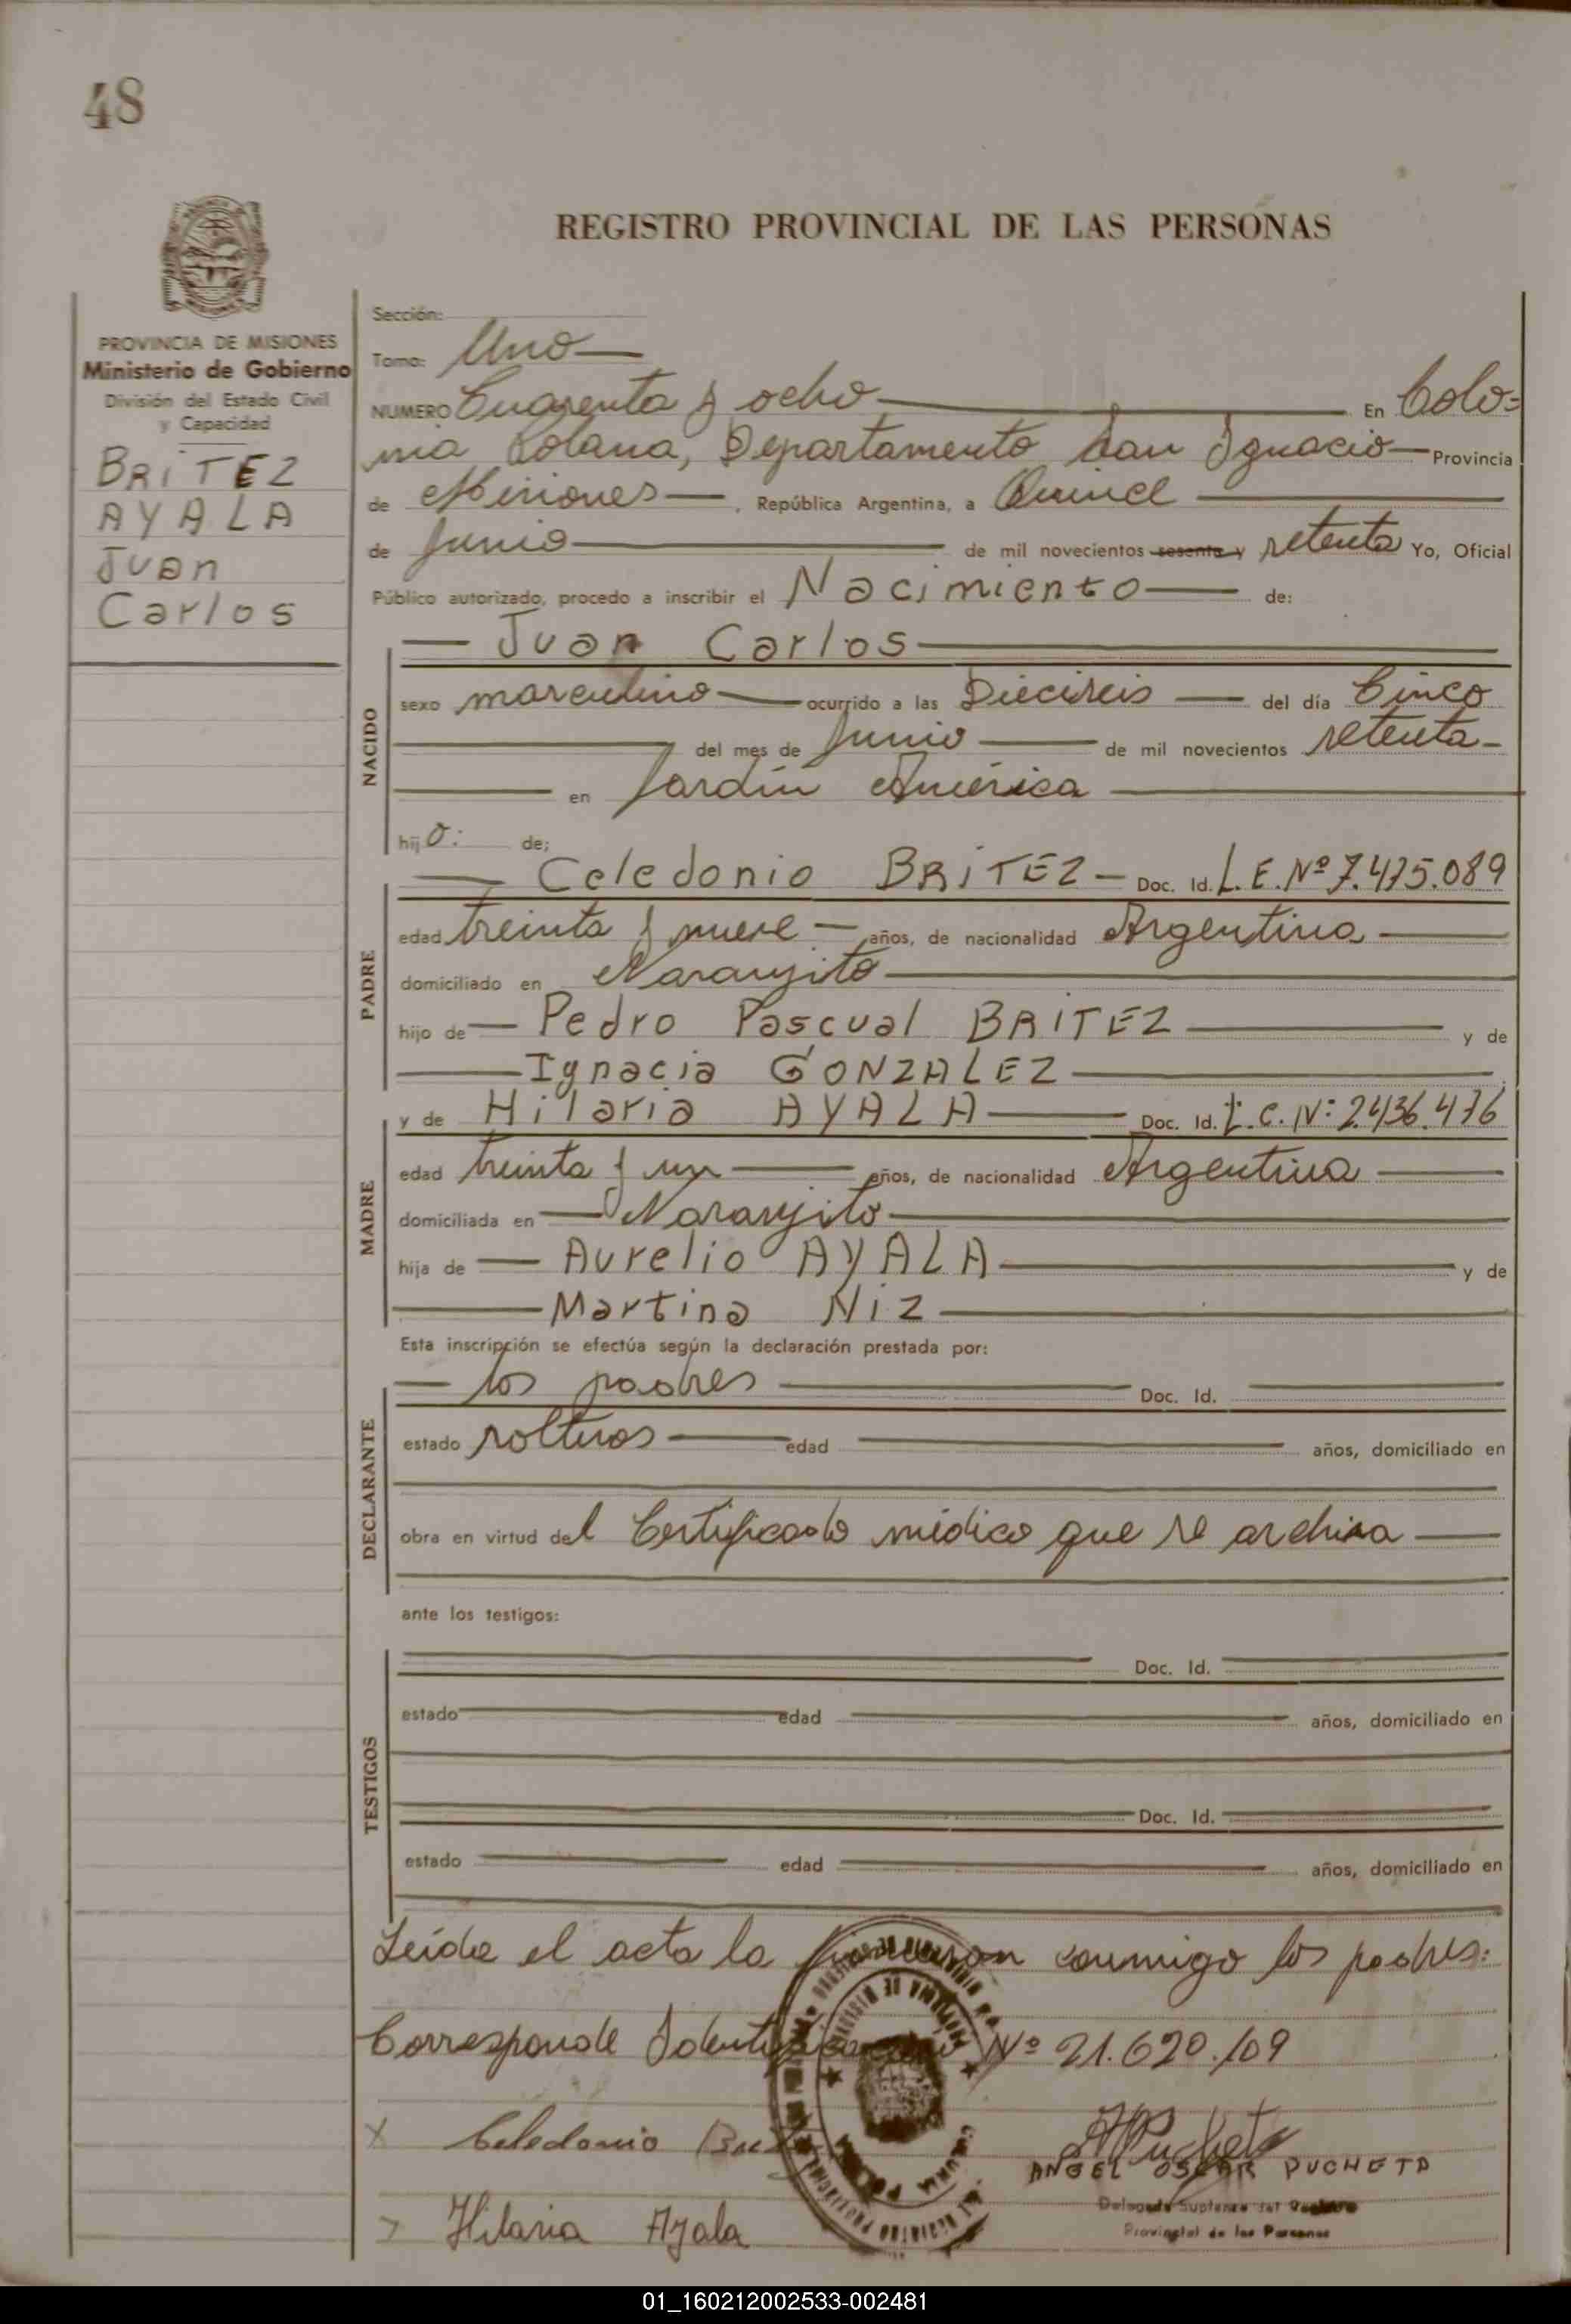 48
REGISTRO PROVINCIAL DE LAS PERSONAS
PROVINCIA DE MISIONES
Ministerio de Gobierno
División del Estado Civil
y Capacidad
BRITEZ
AYALA
Juan
Carlos
Sección:
Tomo: Uno
NUMERO Cuarenta y ocho En Colo=
nia Polana, Departamento San Ignacio Provincia
de Misiones, República Argentina, a Quince
de Junio de mil novecientos sesenta y setenta Yo, Oficial
Público autorizado, procedo a inscribir el Nacimiento de:
NACIDO
Juan Carlos
sexo masculino ocurrido a las Dieciseis del día Cinco
del mes de Junio de mil novecientos setenta
en Jardín América
hijo: de;
PADRE
Celedonio BRITEZ Doc. Id. L.E. Nº 7.475.089
edad treinta y nueve años, de nacionalidad Argentina
domiciliado en Naranjito
hijo de Pedro Pascual BRITEZ y de
Ignacia GONZALEZ
MADRE
y de Hilaria AYALA Doc. Id. L.C. Nº 2.436.476
edad treinta y un años, de nacionalidad Argentina
domiciliada en Naranjito
hija de Aurelio AYALA y de
Martina Niz
Esta inscripción se efectúa según la declaración prestada por:
DECLARANTE
los padres Doc. Id.
estado solteros edad años, domiciliado en
obra en virtud del Certificado médico que se archiva
ante los testigos:
TESTIGOS
Doc. Id.
estado edad años, domiciliado en
Doc. Id.
estado edad años, domiciliado en
Leída el acta la firmaron conmigo los padres:
Corresponde Nº 21.620.109
x Celedonio
Hilaria Ayala
ANGEL OSCAR PUCHETA
Delegado Suplente del Registro
Provincial de las Personas
01_160212002533-002481